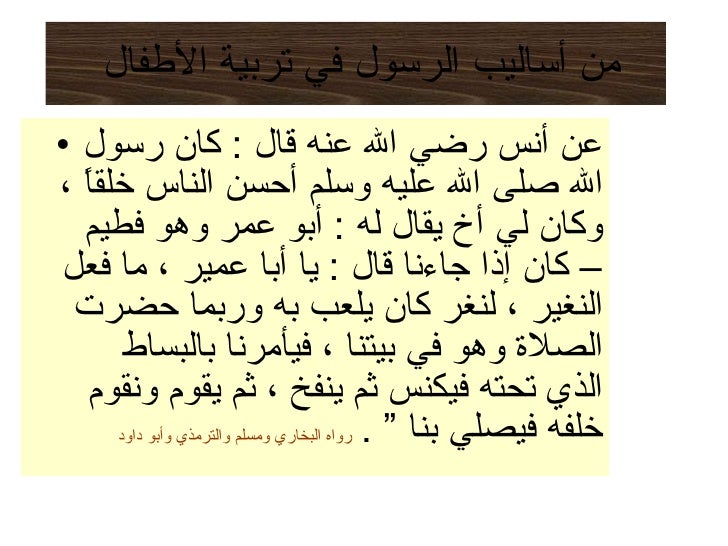 من أساليب الرسول في تربية الأطفال
• عن أنس رضي الله عنه قال : كان رسول
الله صلى الله عليه وسلم أحسن الناس خلقاً ،
وكان لي أخ يقال له : أبو عمر وهو فطيم
– كان إذا جاءنا قال : يا أبا عمير ، ما فعل
النغير ، لنغر كان يلعب به وربما حضرت
الصلاة وهو في بيتنا ، فيأمرنا بالبساط
الذي تحته فيكنس ثم ينفخ ، ثم يقوم ونقوم
خلفه فيصلي بنا ” . رواه البخاري ومسلم والترمذي وأبو داود